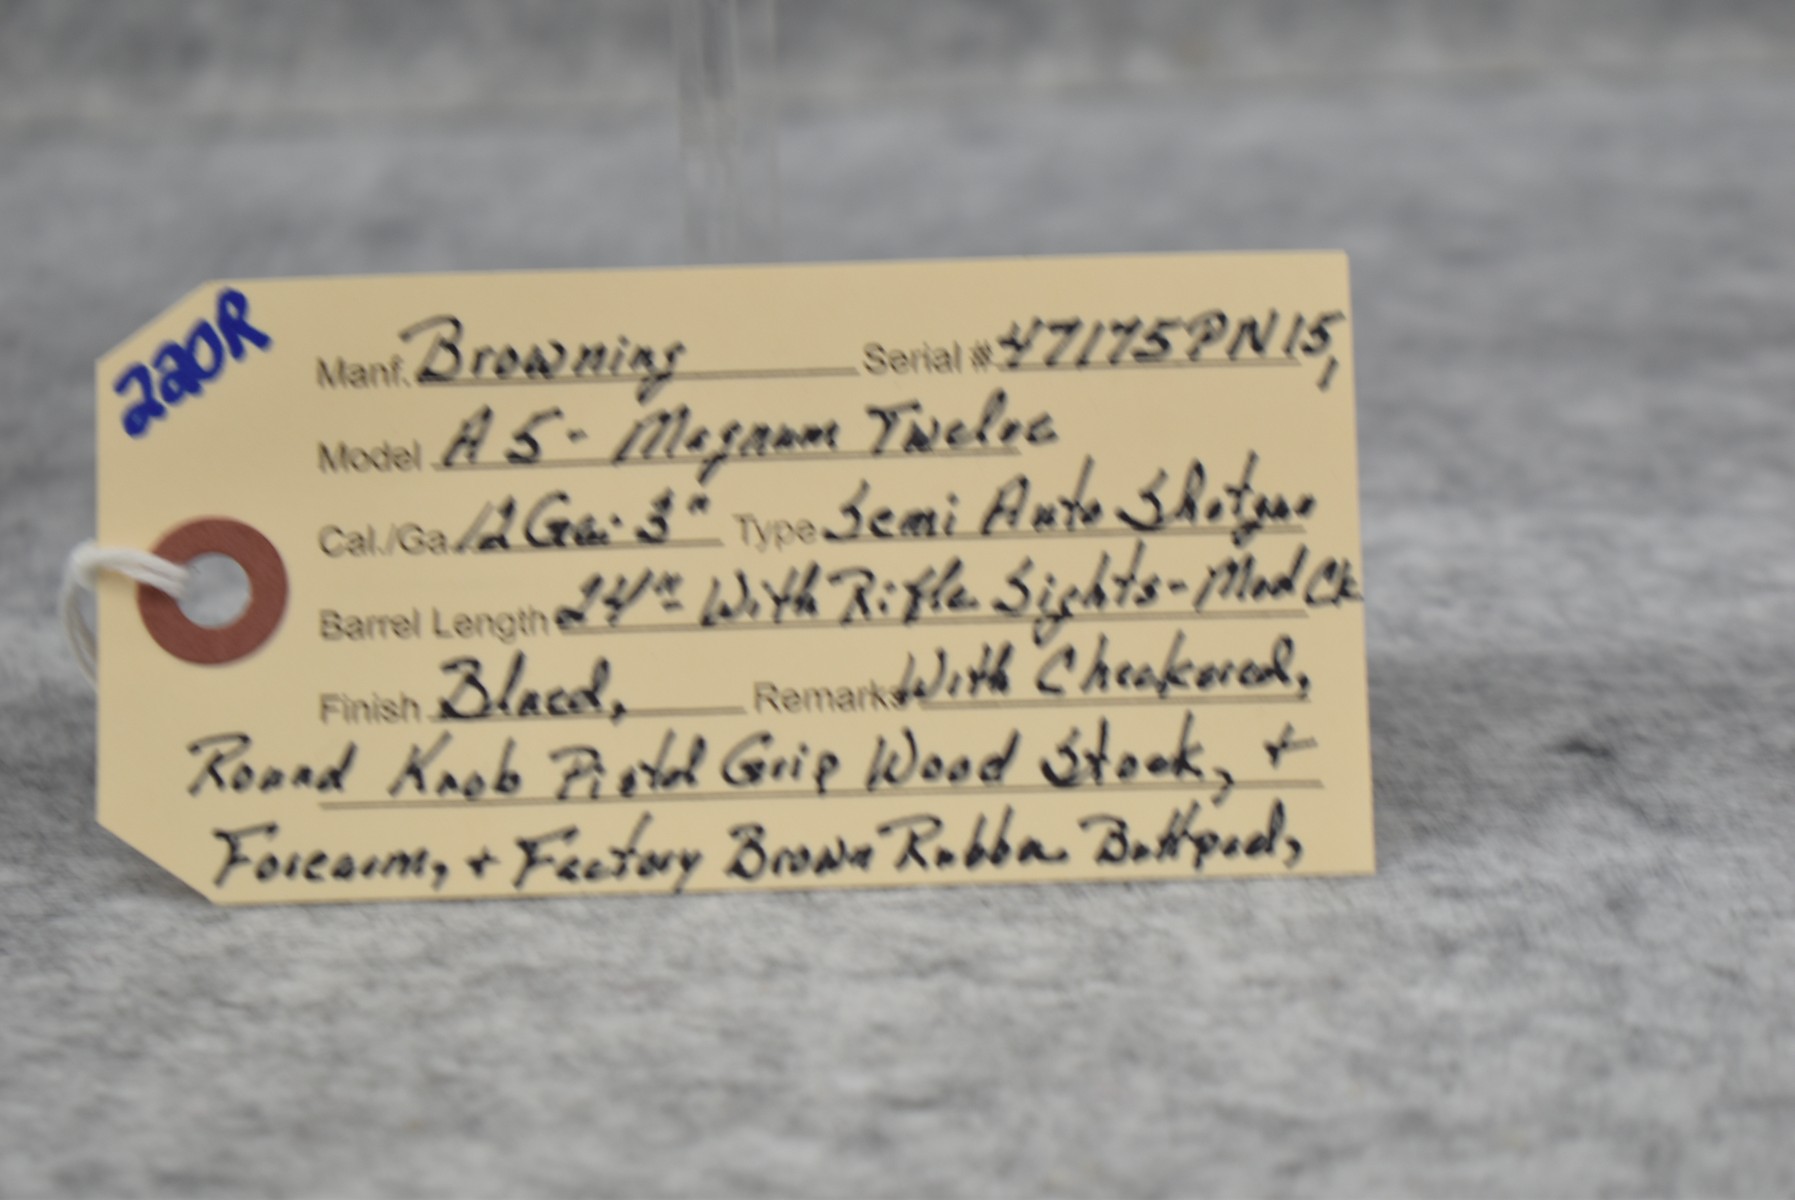 220R
Manf. Browning Serial # 47175PN15,
Model A5- Magnum Twelve
Cal./Ga. 12 Ga.-3" Type Semi Auto Shotgun
Barrel Length 24"- With Rifle Sights-Mod Ck
Finish Blued, Remarks With Checkered,
Round Knob Pistol Grip Wood Stock, +
Forearm, + Factory Brown Rubber Buttpad,